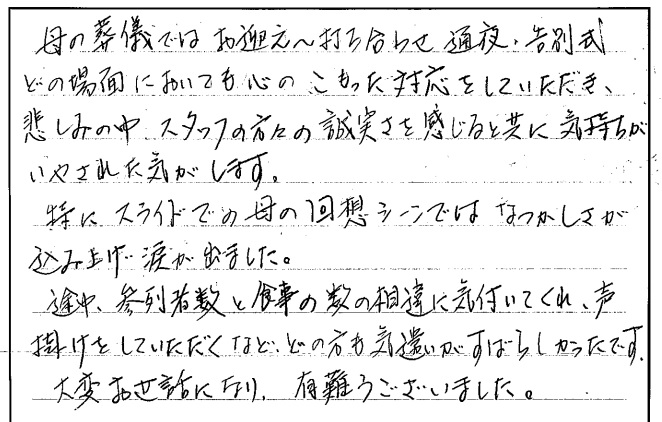 母の葬儀では お迎え〜打ち合わせ 通夜・告別式
どの場面においても心の こもった対応をしていただき、
悲しみの中 スタッフの方々の誠実さを感じると共に 気持ちが
いやされた気がします。
特に スライドでの母の回想シーンでは なつかしさが
込み上げ 涙が出ました。
途中、参列者数と食事の数の相違に気付いてくれ、声
掛けをしていただくなど、どの方も気遣いがすばらしかったです。
大変お世話になり、有難うございました。